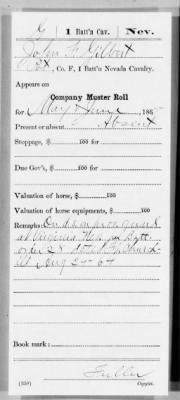 G 1 Batt'n Cav. Nev.
John F. Gilbert
Pvt, Co. F, 1 Batt'n Nevada Cavalry.
Appears on
Company Muster Roll
for May & June, 186
Present or absent Absent
Stoppage, $ 100 for
Due Gov't, $ 100 for
Valuation of horse, $ 100
Valuation of horse equipments, $ 100
Remarks: On
guard
at Virginia
order
at Aug 64
Book mark:
Fuller
(358) Copyist.